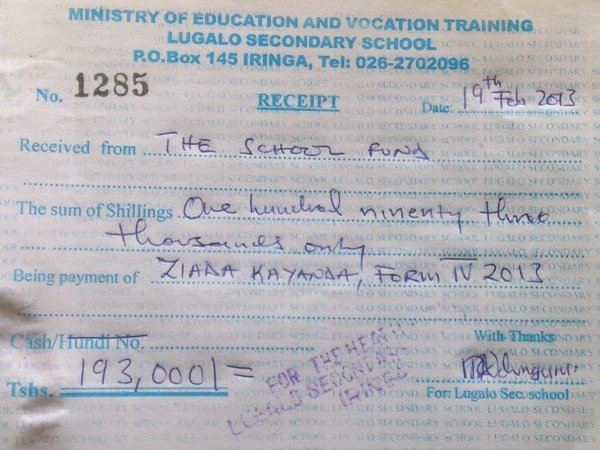 MINISTRY OF EDUCATION AND VOCATION TRAINING
LUGALO SECONDARY SCHOOL
P.O.Box 145 IRINGA, Tel: 026-2702096
No. 1285
RECEIPT
Date: 19th Feb 2013
Received from THE SCHOOL FUND
The sum of Shillings One hundred ninenty three
thousands only
Being payment of ZIADA KAYANDA, FORM IV 2013
Cash/Hundi No.
With Thanks
Tshs. 193,000/=
FOR THE HEAD
LUGALO SECONDARY
IRINGA
For: Lugalo Sec. school